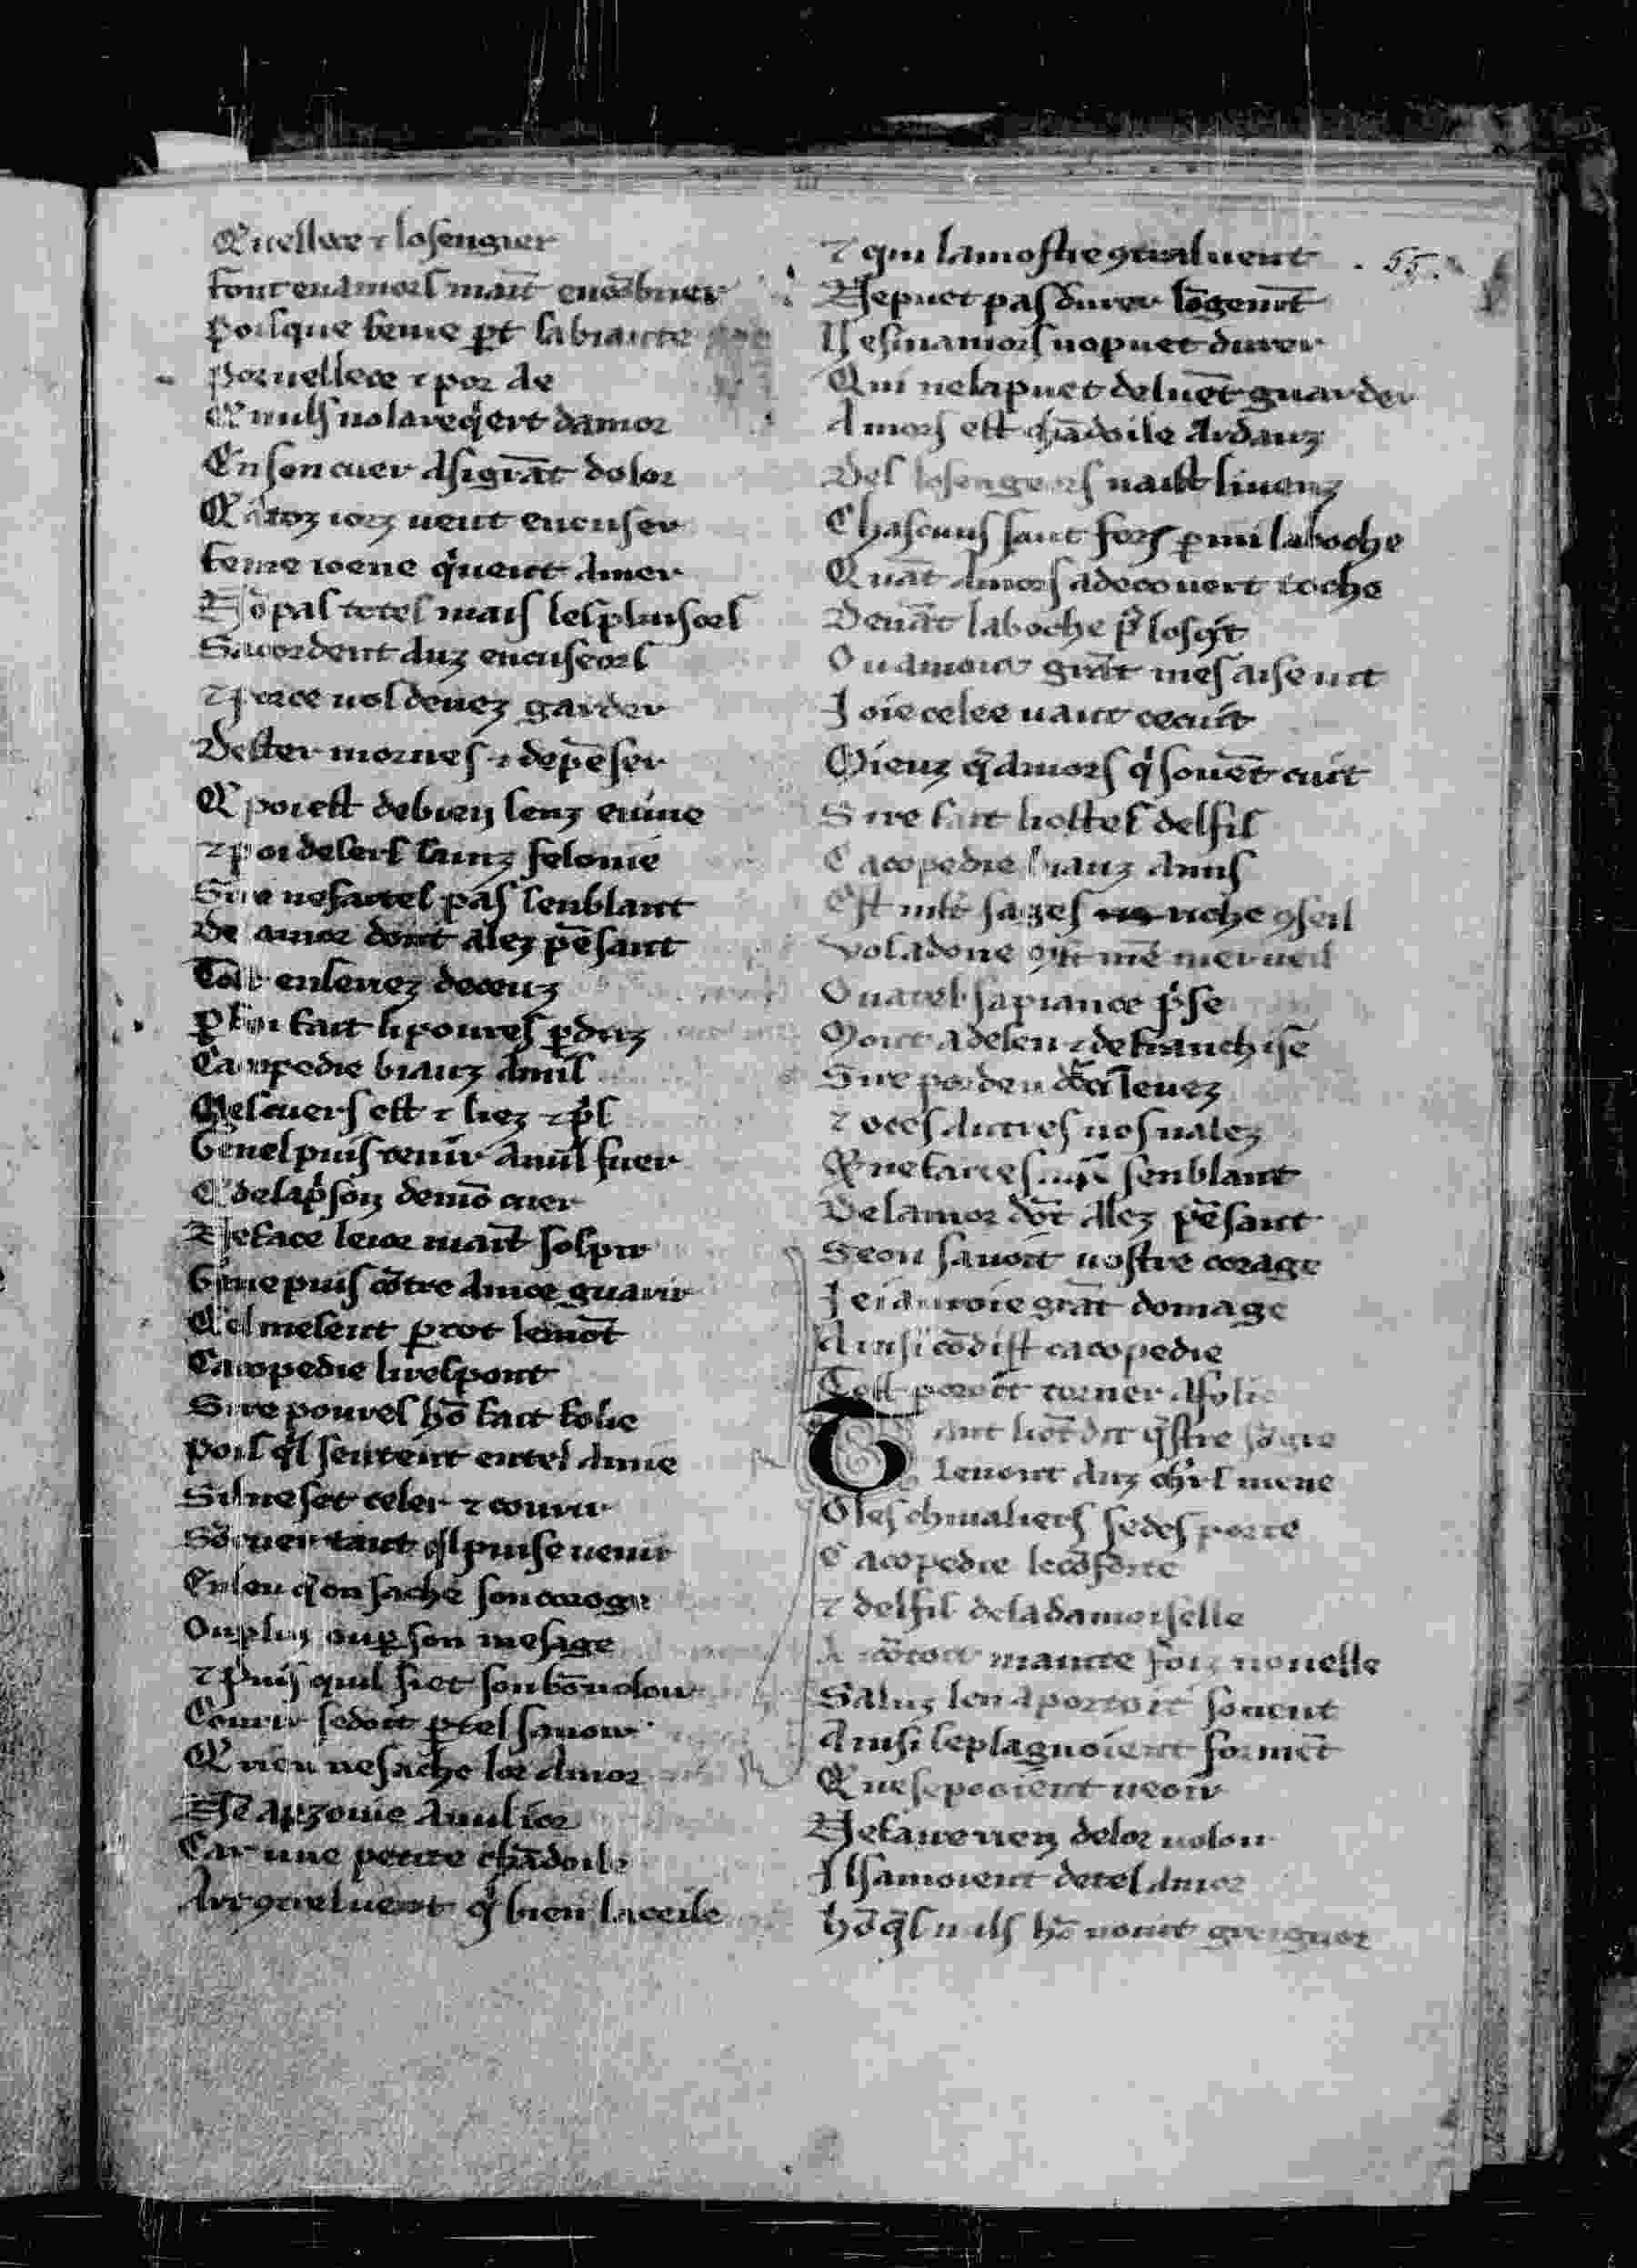 Q uellece ⁊ losengier
font en amors maīt enc̄brier
Poisque feme p̲t sa biaute
Por uellece ⁊ por ae
Q nuls no la req̇ert damor
En son cuer a si grāt dolor
Q a toz iorz ueut encuser
feme ioene q̇ ueut amer
Nō pas totes mais les plusors
S acordent auz encuseors
⁊ por ce uos deuez garder
Dester mornes ⁊ de pēser
Q poi est de bien senz enuie
⁊ poi de sers sainz felonie
Sire ne faites pas senblant
De amor dont alez pēsant
Tost en seriez deceuz
p̲ foi fait li poures p̲duz
Cacopedie biauz amis
Mes cuers est ⁊ liez ⁊ p̓s
Ge nel puis tenir a nul fuer
C de la p̓son de mō cuer
Ne face ieior maīt sospir
Ge ne puis cōtre amor guarir
Cel me sent p̲ tot le mōt
Cacopedie li respont
Sire poures hō fait folie
Pois q̇l sentent en tel amie
Sil ne set celer ⁊ courir
Sō uer tant q̇l puise uenir
En leu q̇ on sache son corage
Ou p̲ lui ou p̲ son mesage
⁊ Puis quil siet son bō uoloir
Courir se doit p̲ tel sauoir
Q rien ne sache lor amor
Ne ap̲zoiue a nul ior
Car une petite chādoile
Art ɔtre luent q̇ bien la ceile
⁊ qui la mostre ɔtral uent
Ne puet pas durer lōgemēt
Nesin amors no puet durer
Qui ne la puet del uēt guarder
Amors est chādoile ardanz
Des losengeors naist li uenz
Chascuns saut fors p̲mi la boche
Quāt amors a decouert toche
Deuāt la boche p̓ losq̇t
Ou amoit grāt mesaise uit
Joie celee uaut ce cuit
Mieuz q̄ amors q̇ souēt cuit
Sire fait li ostes del fil
Cacopedie biauz amis
Est mlt̄ sages riche ɔseil
Vos a done ɔst mē merueil
Ou a tel sapiance p̓se
Mout a de seu ⁊ de franchise
Sire por deu car leuez
⁊ o ces autres uos ualez
Q ne faices senblant
De lamor dōt alez pēsant
Se on sauoit uostre corage
Je i auroie grāt domage
Ainsi cō dist cacopedie
Tost poroit torner a folie
Tant li ōt dit q̇
leuont auz
O les chiualiers se desporte
Cacopedie le cōforte
⁊ del fil de la damoiselle
A cōtoit mainte foiz nouelle
Saluz len aportoit souent
Ainsi se plagnoient formēt
Q ne se pooient ueoir
Ne faire rien de lor uoloir
Il samoient de tel amor
hō q̇s nuls hō nouit greignor
55.